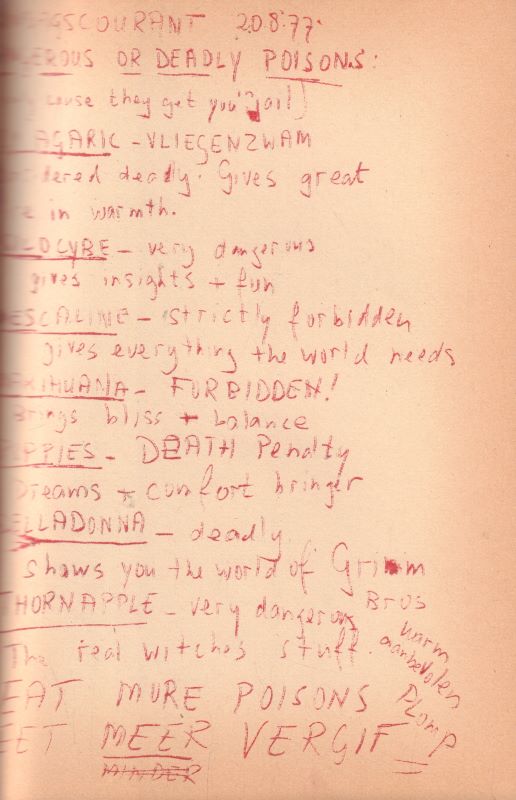 GSCOURANT 20.8.77.
GEROUS OR DEADLY POISONS:
cause they get you "jail)
AGARIC - VLIEGENZWAM
sidered deadly. Gives great
e in warmth.
LOCYBE - very dangerous
gives insights + fun
ESCALINE - strictly forbidden
gives everything the world needs
ARIHUANA - FORBIDDEN!
Brings bliss + balance
PUPPIES - DEATH Penalty
Dreams + comfort bringer
ELLADONNA - deadly.
shows you the world of Grimm
Bros
THORNAPPLE - very dangerous
The real witches stuff.
warm
aanbevolen
PLOMP
EAT MORE POISONS
EET MEER VERGIF
MINDER